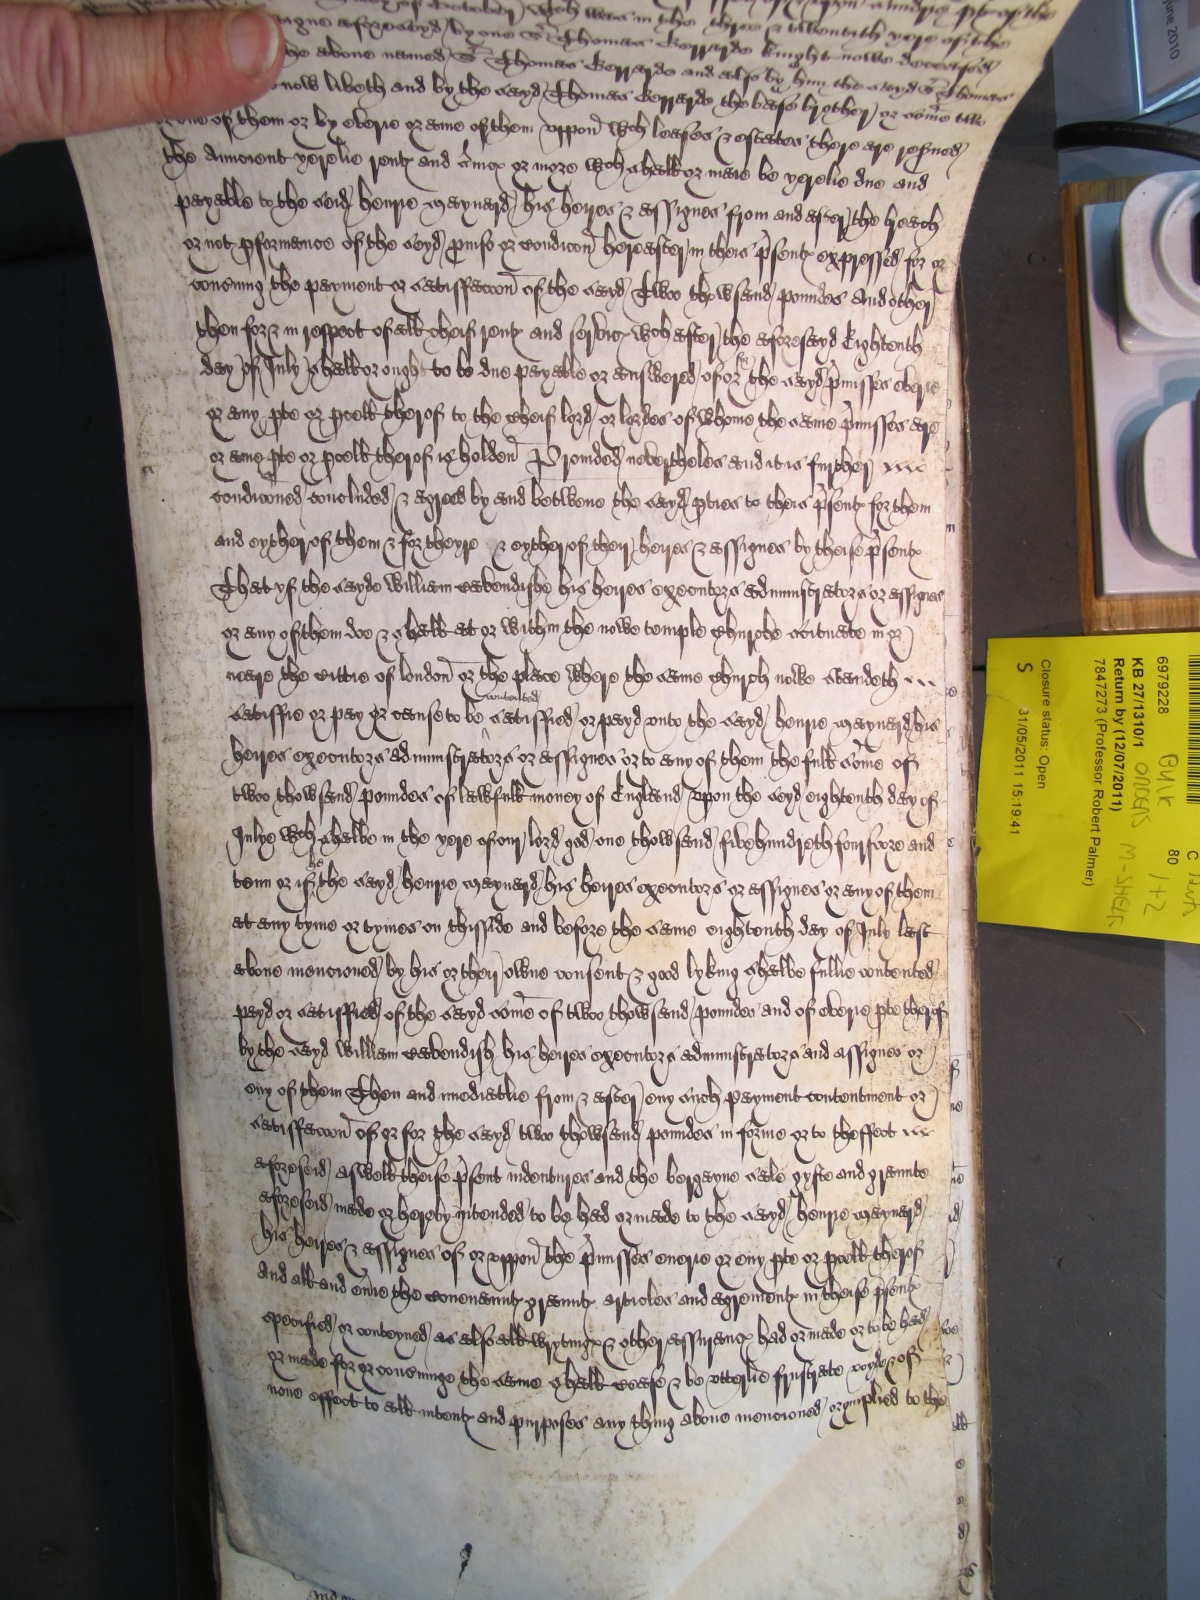 day of October wch was in the three & twentith yere of the
aforesayd by one Sr Thomas Gerrarde knight nowe decessed
the above named Sr Thomas Gerrarde and also by him the sayd Sr Thomas
now liveth and by the sayd Thomas Gerrarde the base brother or some two
or one of them or by everie or anie of them uppon wch leases & estates there are reserved
the Auncient yerelie rent and rentes or more wch shall or maie be yerelie due and
payable to the said henrie maynard his heires & assignes from and after the breach
or not pformance of the sayd proviso or condicon hereafter in theis psent expressed for or
concerning the payment or satisfaccon of the sayd Twoo thowsand poundes And other
then for & in respect of all cheif rent and service wch after the aforesayd Eightenth
day of July shall or ought to be due payable or answered of or for the sayd pmisses everie
or any pte or pcell therof to the cheif lord or lordes of whome the same pmisses are
or anie pte or pcell therof is holden Provided nevertheles and it is further
condiconed concluded & agreed by and betwene the sayd pties to theis psent for them
and eyther of them & for theyre & eyther of their heires & assignes by theise psent
That yf the sayde William Cavendishe his heires executors administrators or assignes
or any of them doe & shall at or within the nowe temple Churche scituate in or
neare the Cittie of london or the place where the same Church nowe standeth
contented
satisfie or pay or cause to be satisfied or payd unto the sayd henrie maynard his
heires executors administrators or assignes or to any of them the full some of
twoo thowsand poundes of lawfull money of England upon the sayd eightenth day of
Julye wch shalbe in the yere of our lord god one thowsand fivehundreth fourscore and
tenn or if the sayd henrie maynard his heires executors or assignes or any of them
at any tyme or tymes on thisside and before the same eightenth day of July last
above mencioned by his or their owne consent & good lyking shalbe fullie contented
payd or satisfied of the sayd some of twoo thowsand poundes and of everie pte therof
by the sayd William Cavendish his heires executors administrators and assignes or
any of them Then and imediatlie from & after any such payment contentment or
satisfaccon of or for the sayd twoo thowsand poundes in forme or to theffect
aforesaid aswell theise psent indentures and the bargayne sale gyfte and graunte
aforesaid made or hereby intended to be had or made to the sayd henrie maynard
his heires & assignes of or uppon the pmisses everie or any pte or pcell therof
And all and everie the covenaunt graunt articles and agrement in theise psent
specified or conteyned as also all wryting & other assuranc had or made or to be had
or made for or concerninge the same shall cease & be utterlie frustrate voyde & of
none effect to all intent and purposes any thing above mencioned or ymplied to the
June 2010
6979228
KB 27/1310/1
Return by (12/07/2011)
7847273 (Professor Robert Palmer)
Closure status: Open
S 31/05/2011 15:19:41
80
BULK
ORDERS
1+2
M-SHELF